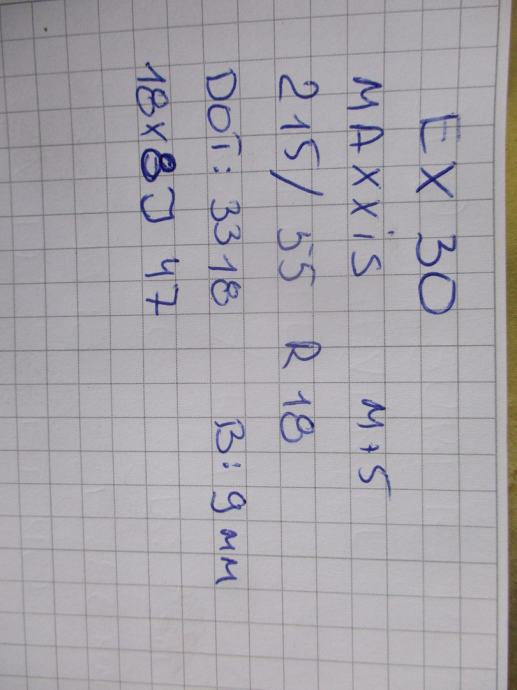 EX 30
MAXXiS M+S
215/55 R18
DOT: 3318 B: 9 мм
18x8J 47